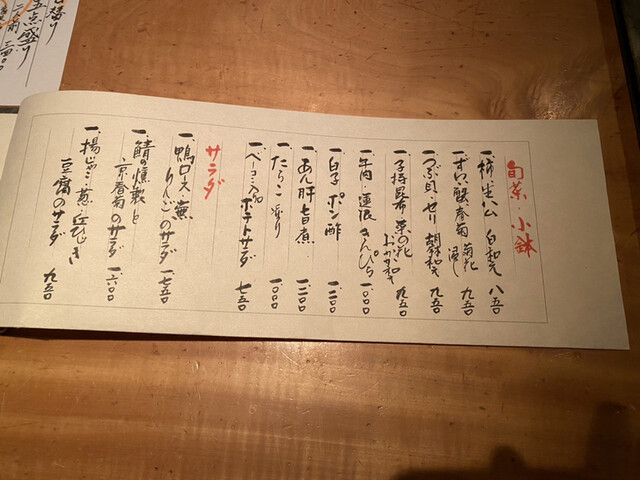 旬菜・小鉢
一、柿・生ハム 白和え 八五〇
一、ずわい蟹・春菊 菊花浸し 九五〇
一、つぶ貝・せり 胡麻和え 九五〇
一、子持昆布 菜の花 おかか和え 九五〇
一、牛肉・蓮根 きんぴら 一、〇〇〇
一、白子 ポン酢 一、二〇〇
一、あん肝旨煮 一、二〇〇
一、たらこ炙り 一、〇〇〇
一、ベーコン入り ポテトサラダ 七五〇
サラダ
一、鴨ロース・蕪 りんごのサラダ 一、七五〇
一、鯖の燻製と 京春菊のサラダ 一、六〇〇
一、揚じゃこ・葱 豆腐のサラダ 九五〇
五点盛り
二人前 三四〇〇